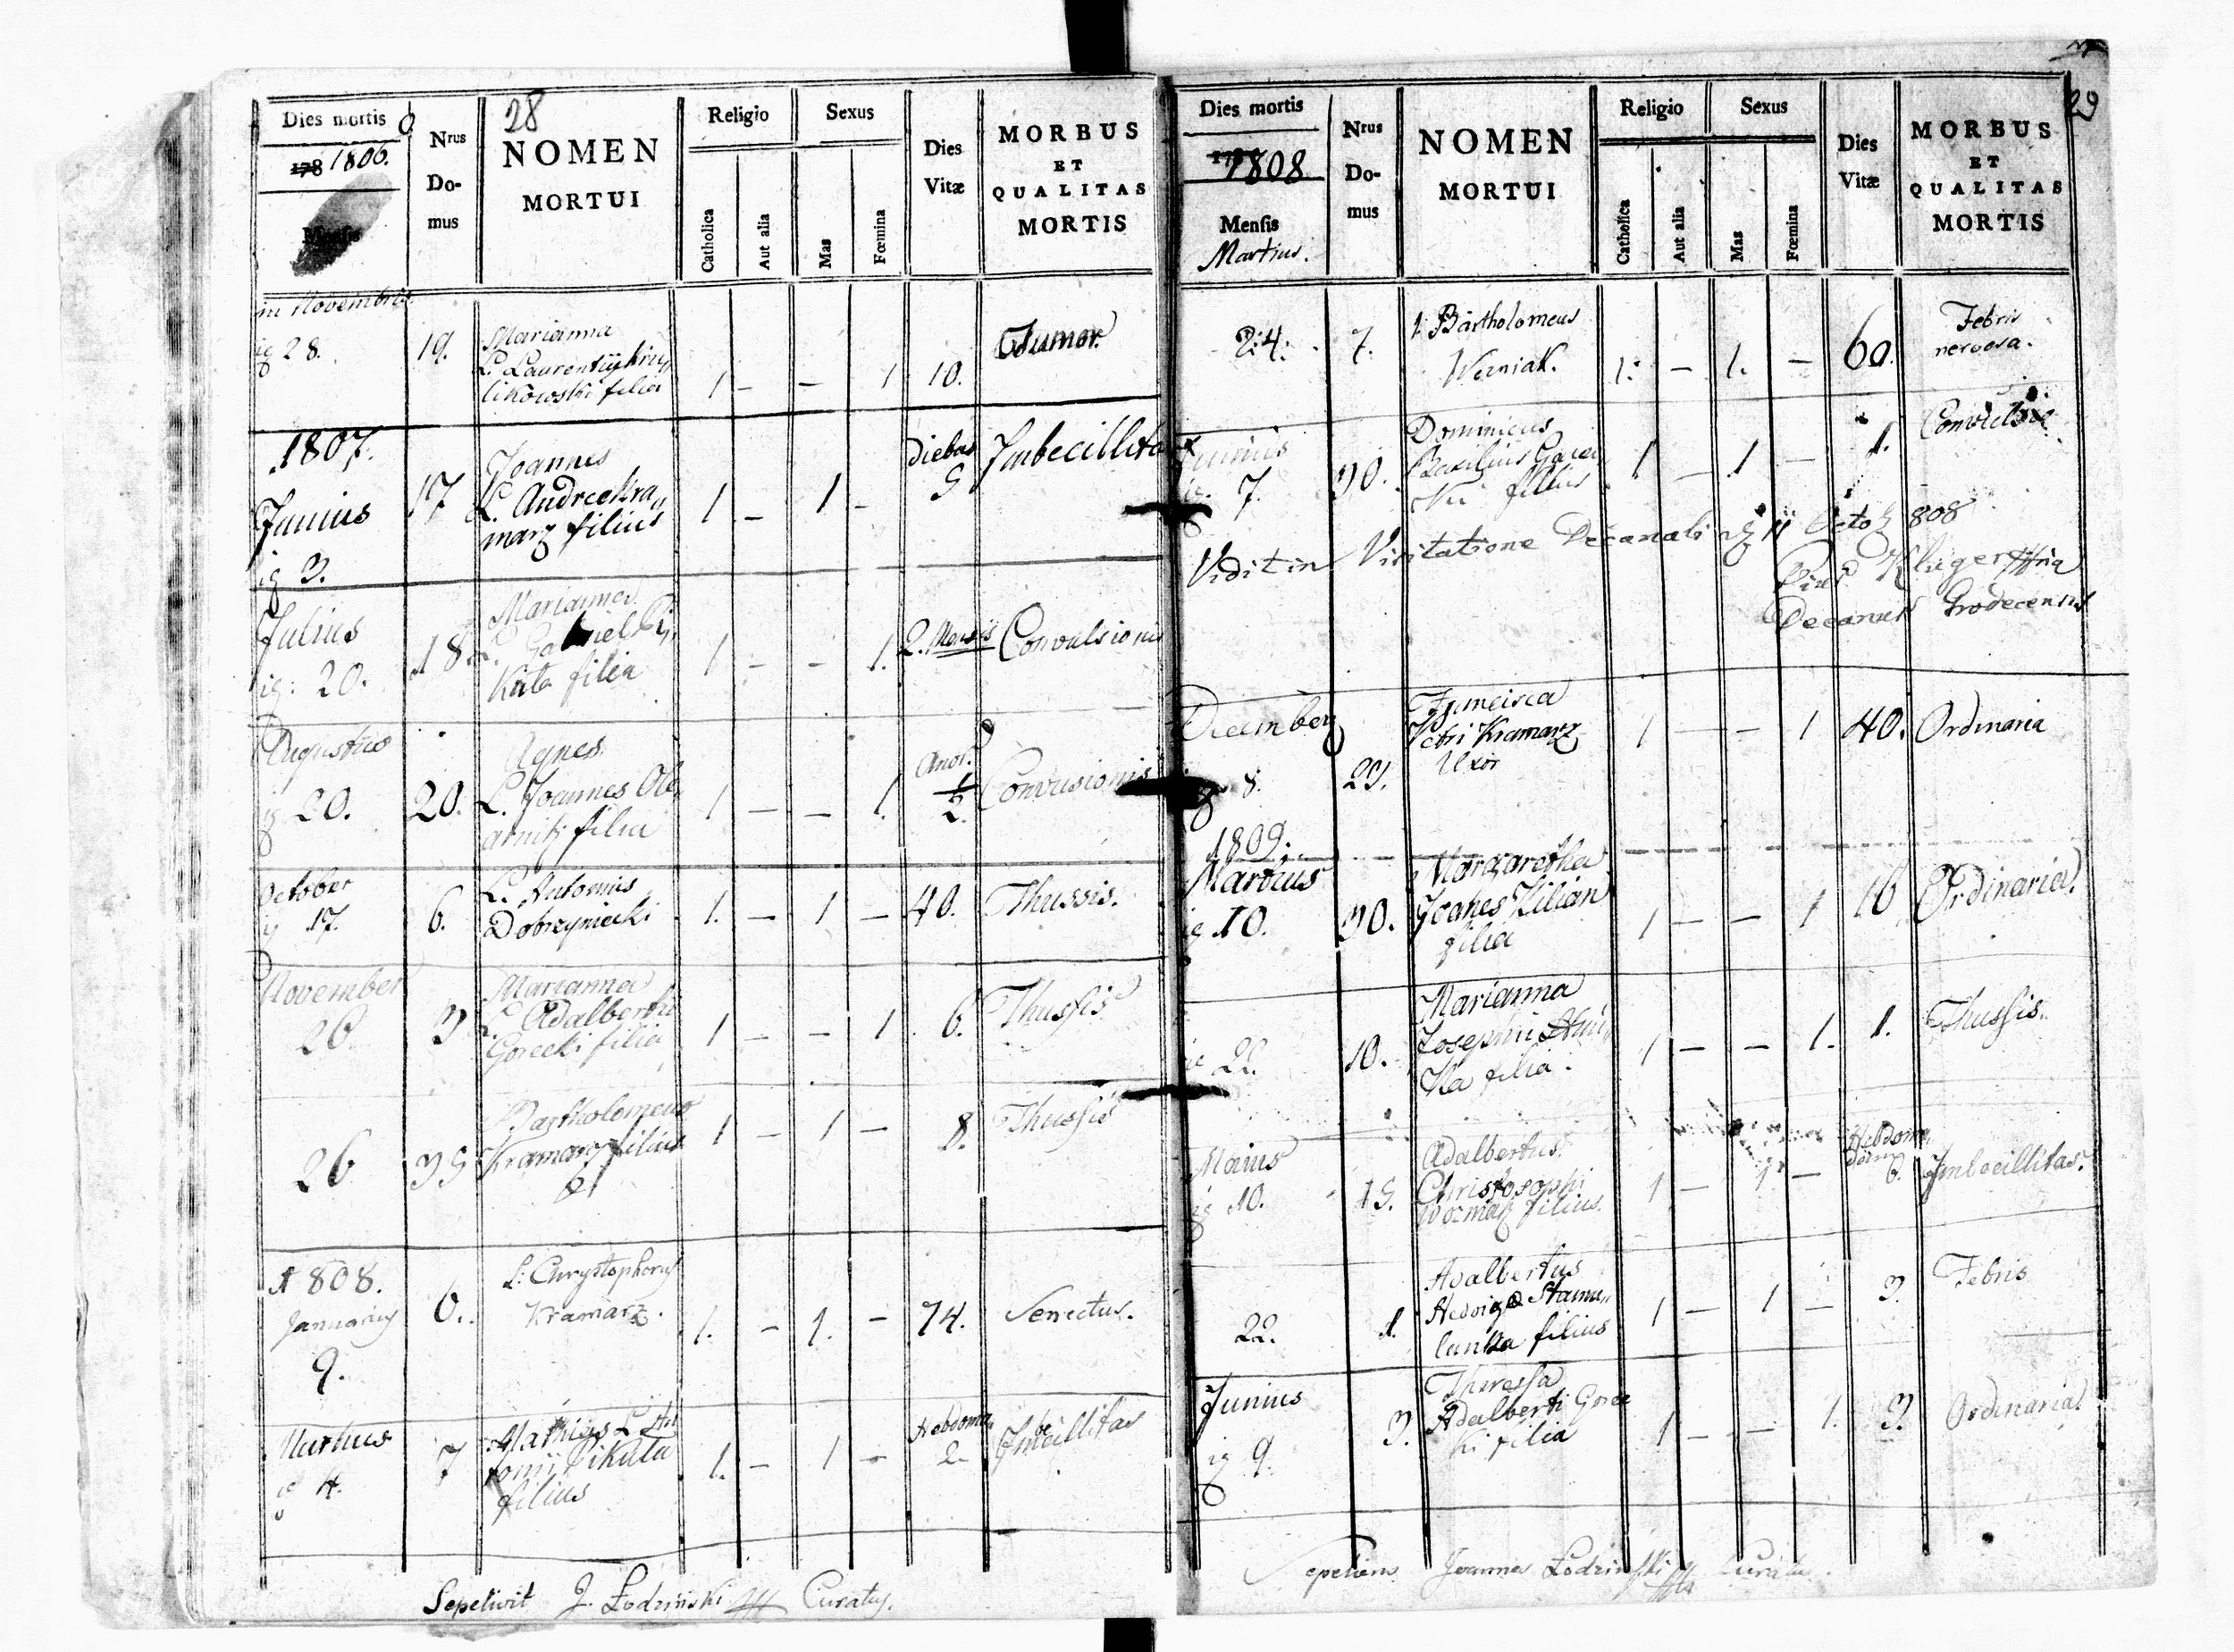 28
Dies mortis
1806.
Mensis
Nrus
Do-
mus
NOMEN
MORTUI
Religio
Catholica
Aut alia
Sexus
Mas
Fœmina
Dies
Vitæ
MORBUS
ET
QUALITAS
MORTIS
in Novembris
28. 19. Marianna
L. Laurentij
likowski filia 1 – – 1 10. Tumor.
1807.
Junius 17 Joannes
L. Andree Kra„
marz filius 1 – 1 – Diebus 5 Imbecillitas
3.
Julius
20. 18 Marianna
L.
Kuta filia 1 – – 1. 2. Mensis Convulsionis
Augustus
20. 20. Agnes
L. Joannes Ole„
arnik filia 1 – – 1. Anni ½ Convusionis
October
17. 6. L. Antonius
Dobrzyniecki 1. – 1 – 40. Thussis.
November
20 3 Marianna
L. Adalberthi
Gorecki filia 1 – – 1 6. Thussis
26 35 Bartholomeus
Kramarz filius 1 – 1 – 8. Thussis
1808.
Januarius
9. 6. L: Chrystophorus
Kramarz. 1. – 1. – 74. Senectus.
Martius
4. 7 Mathias L An
tonii Pikuła
filius 1. – 1 – Hebdoma„ 2. Imbecillitas
Sepelivit J. Łodziński Curatus.
29
Dies mortis
1808
Mensis
Martius.
Nrus
Do-
mus
NOMEN
MORTUI
Religio
Catholica
Aut alia
Sexus
Mas
Fœmina
Dies
Vitæ
MORBUS
ET
QUALITAS
MORTIS
24. 7. Bartholomeus
Wozniak. 1. – 1. – 60. Febris
nervosa.
Junius
7. 30. Dominicus
Basilius
filius 1 – 1 – 1.
Vidit in Visitatione Decanali 11 808
Decanus Grodecensis
December
8. 23. Francisca
Petri Kramarz
Uxor 1 – – 1 40. Ordinaria
1809.
Martius
10. 30. Margaretha
Joanes Kilian
filia 1 – – 1 16 Ordinaria.
22. 10. Marianna
Josephi
filia. 1 – – 1. 1. Thussis.
Maius
10. 15. Adalbertus
Christosophi
Wozniak filius. 1 – 1 – Hebdoma„
dam 6. Imbecillitas.
22. 1. Adalbertus
Hedvigo Stanu„
lanka filius 1 – 1 – 3. Febris
Junius
9. 3. Theressa
Adalberti Gorec
ki filia 1 – – 1. 3. Ordinaria
Sepeliens Joannes Łodziński Curatus.